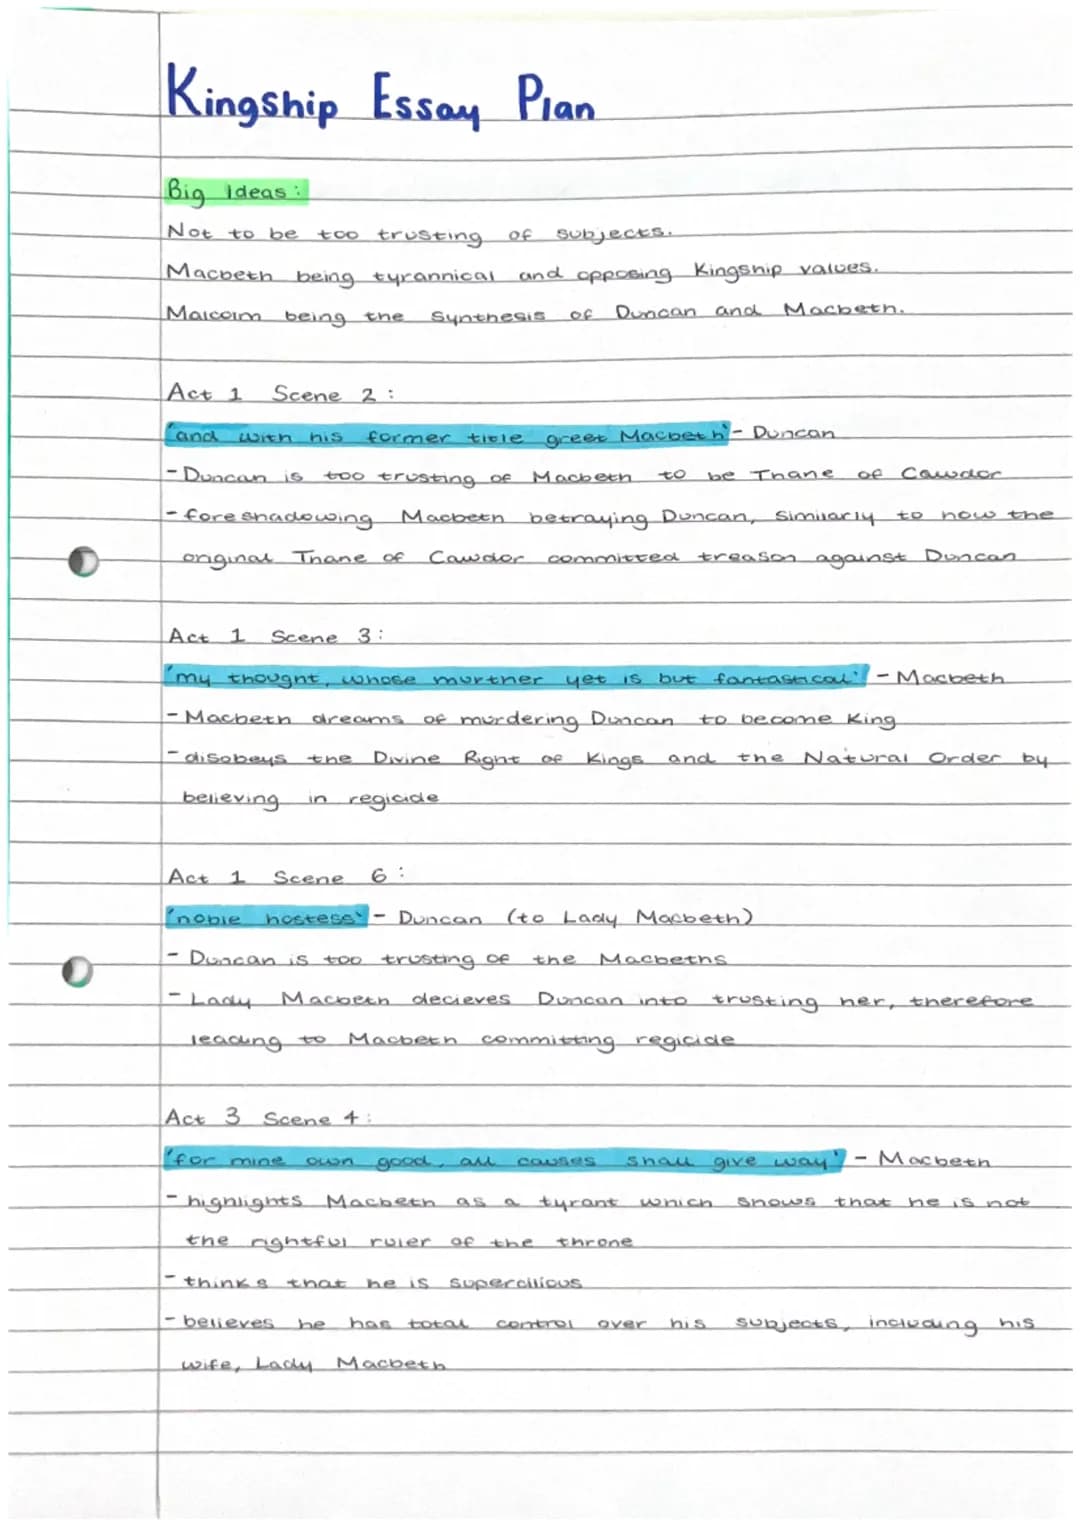 Kingship Essay Plan
Big Ideas:
Not to be too trusting of subjects.
Macbeth being tyrannical and opposing Kingship values.
Malcolm being the Synthesis of Duncan and Macbeth.
Act 1 Scene 2:
'and with his former title greet Macbeth' - Duncan
- Duncan is too trusting of Macbeth to be Thane of Cawdor
- foreshadowing Macbeth betraying Duncan, similarly to how the
original Thane of Cawdor committed treason against Duncan
Act 1 Scene 3:
'my thought, whose murther yet is but fantastical' - Macbeth
- Macbeth dreams of murdering Duncan to become King
- disobeys the Divine Right of Kings and the Natural Order by
believing in regicide
Act 1 Scene 6:
'noble hostess' - Duncan (to Lady Macbeth)
- Duncan is too trusting of the Macbeths
- Lady Macbeth decieves Duncan into trusting her, therefore
leading to Macbeth committing regicide
Act 3 Scene 4:
'for mine own good, all causes shall give way' - Macbeth
- highlights Macbeth as a tyrant which shows that he is not
the rightful ruler of the throne
- thinks that he is supercilious
- believes he has total control over his subjects, including his
wife, Lady Macbeth